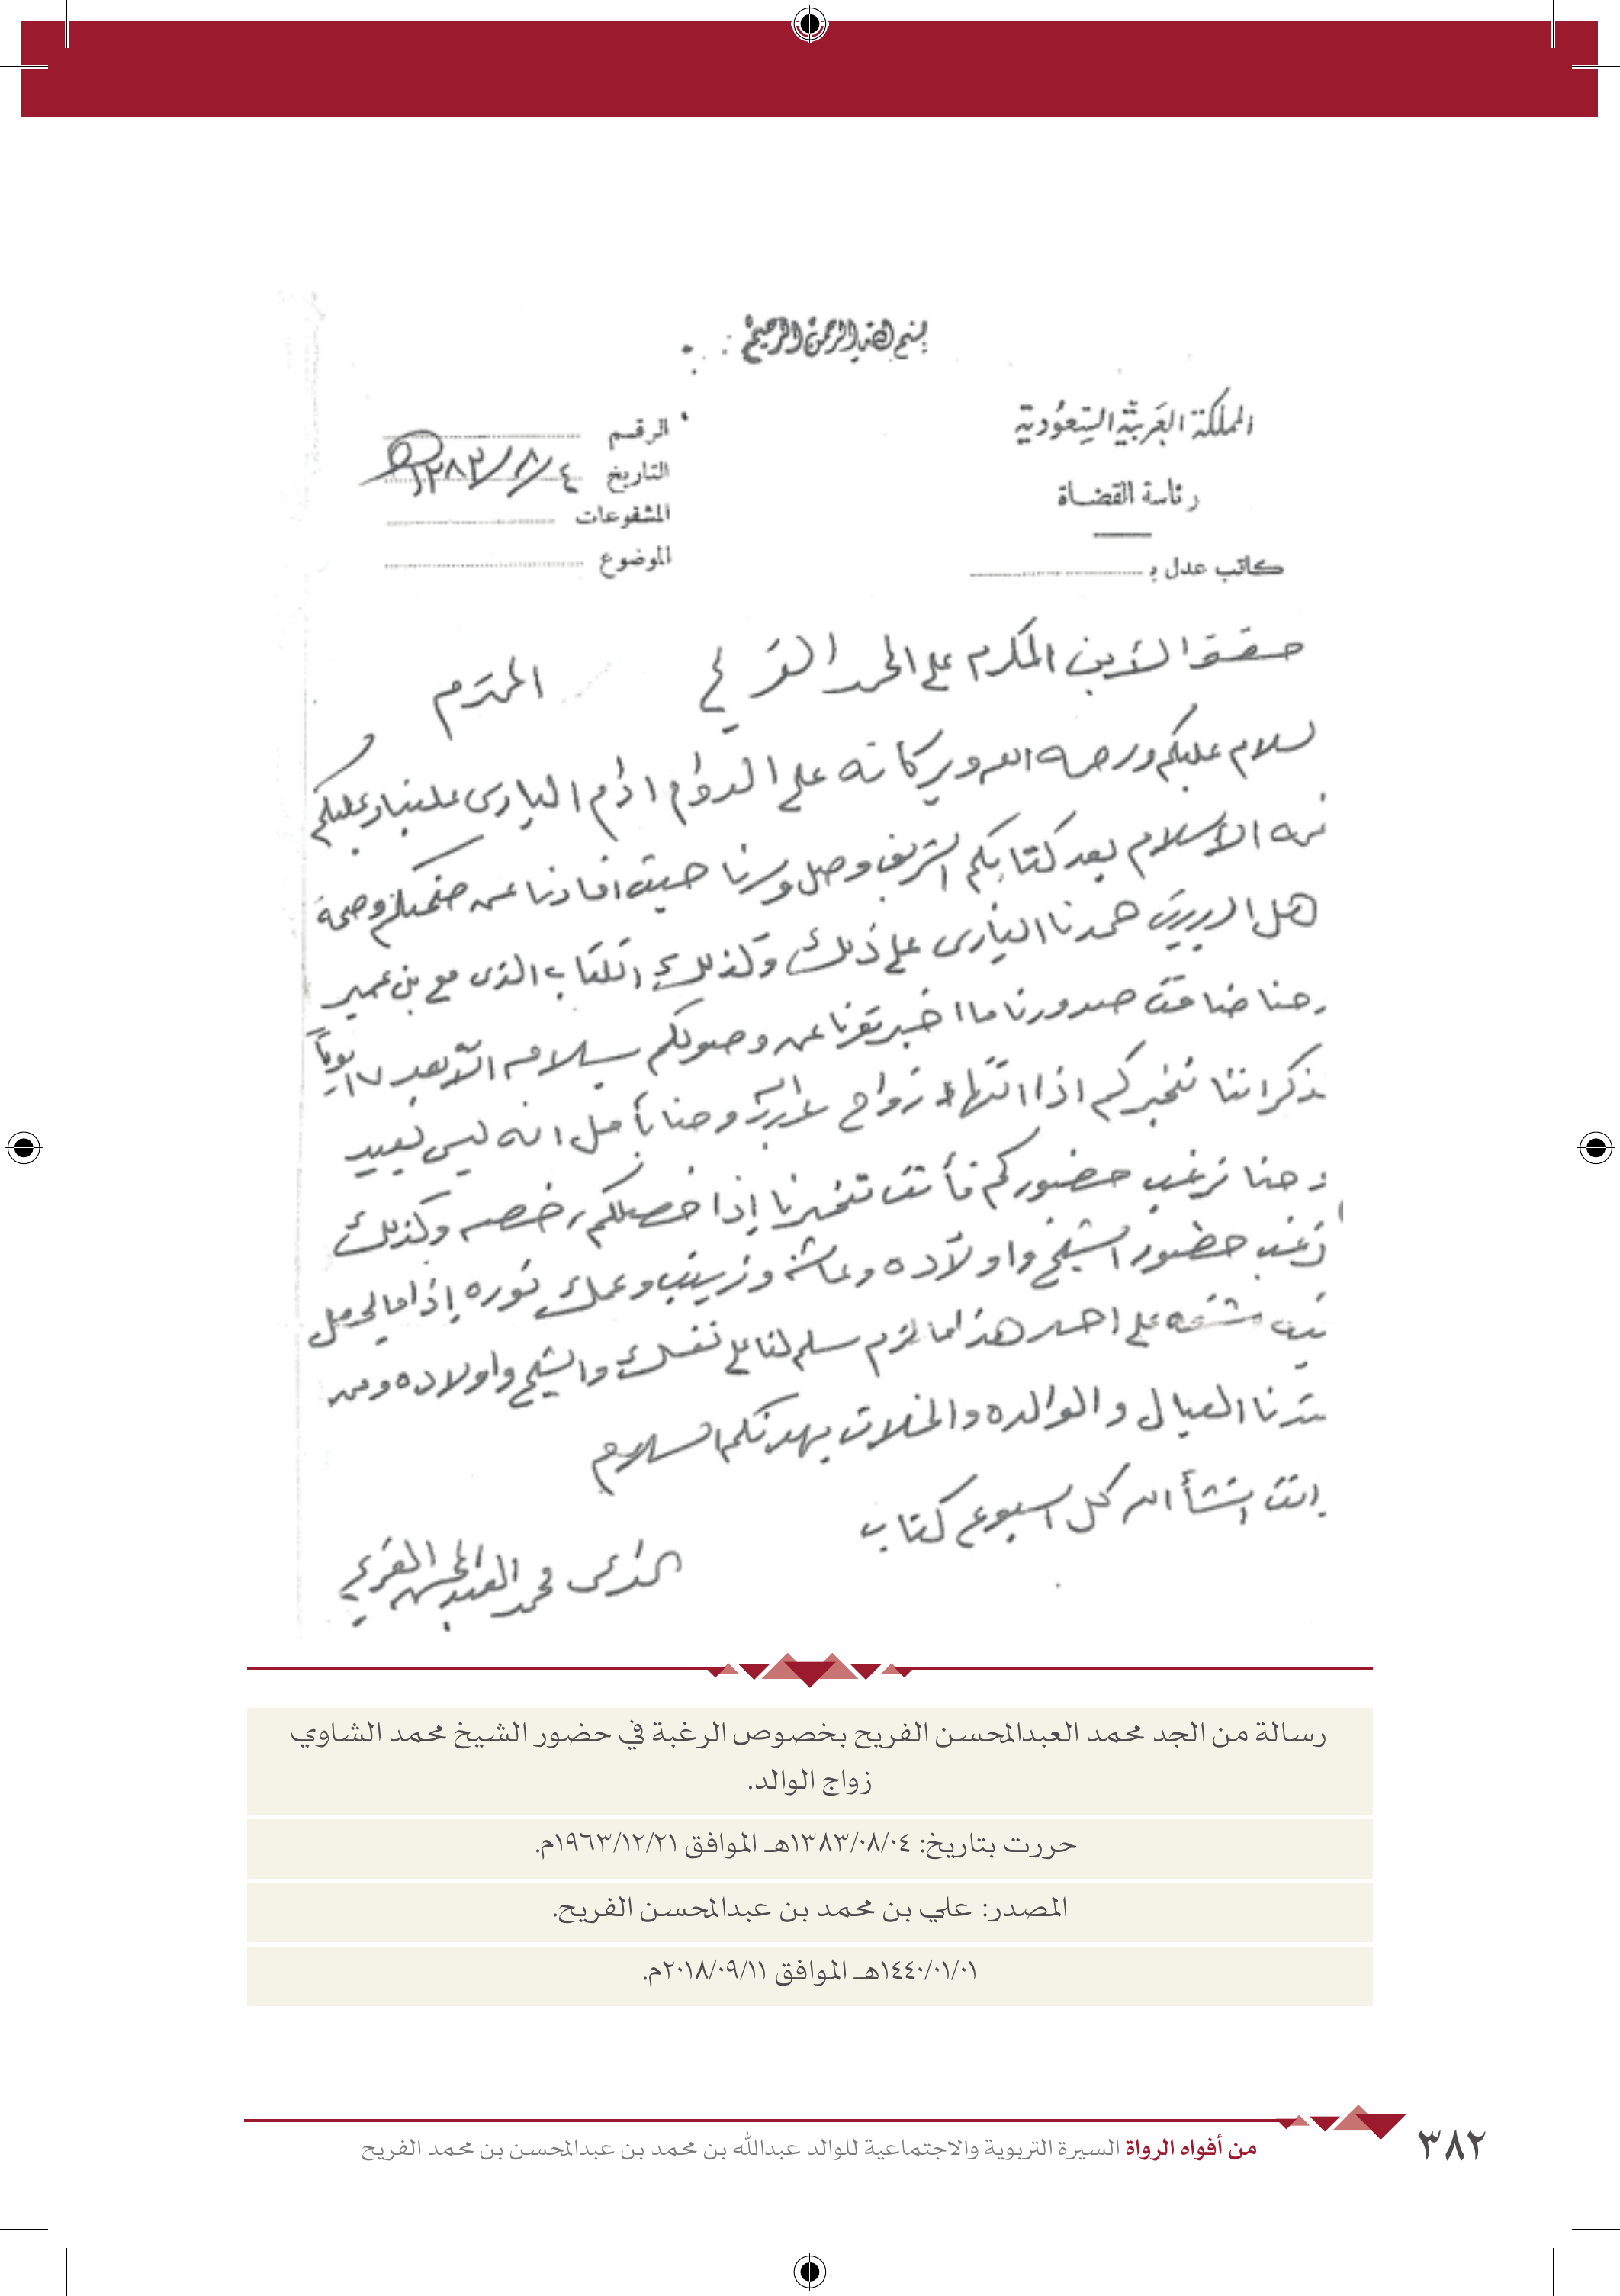 بسم الله الرحمن الرحيم
المملكة العربية السعودية
رئاسة القضاة
كاتب عدل بـ
الرقم
التاريخ ٤/٨/١٣٨٣هـ
المشفوعات
الموضوع
حضرة الأبن المكرم على الحمد القرعي المحترم
لسلام عليكم ورحمه الله وبركاته على الدوام ادام البارى علينا وعليكم
نعمه الأسلام بعد كتابكم الشريف وصل وسرنا حيث افادنا عن صحتكم وصحة
هل الدريرك حمدنا البارى على ذلك وكذلك الكتاب الذى مع بن عمير
حنا ضاقت صدورنا ما اخبرتونا عن وصولكم بسلامه الآ بعد ١٧ يوماً
نذكر اننا نخبركم اذا انتهاء زواج وحنا نأمل انه ليس ببعيد
وحنا نرغب حضوركم فأنت تخبرنا إذا حصلكم رخصه وكذلك
نرغب حضور الشيخ واولاده وعائشة وزينب وعمك نوره إذا ما يحصل
مشقه على احد هذا ما لزم سلم لنا على نفسك والشيخ واولاده ومن
عندنا العيال والوالده والخالات يهدنكم السلام
انت انشأ الله كل اسبوع كتاب
الداعى محمد العبدالمحسن الفريح
رسالة من الجد محمد العبدالمحسن الفريح بخصوص الرغبة في حضور الشيخ محمد الشاوي
زواج الوالد.
حررت بتاريخ: ١٣٨٣/٠٨/٠٤هـ الموافق ١٩٦٣/١٢/٢١م.
المصدر: علي بن محمد بن عبدالمحسن الفريح.
١٤٤٠/٠١/٠١هـ الموافق ٢٠١٨/٠٩/١١م.
من أفواه الرواة السيرة التربوية والاجتماعية للوالد عبدالله بن محمد بن عبدالمحسن بن محمد الفريح
٣٨٢